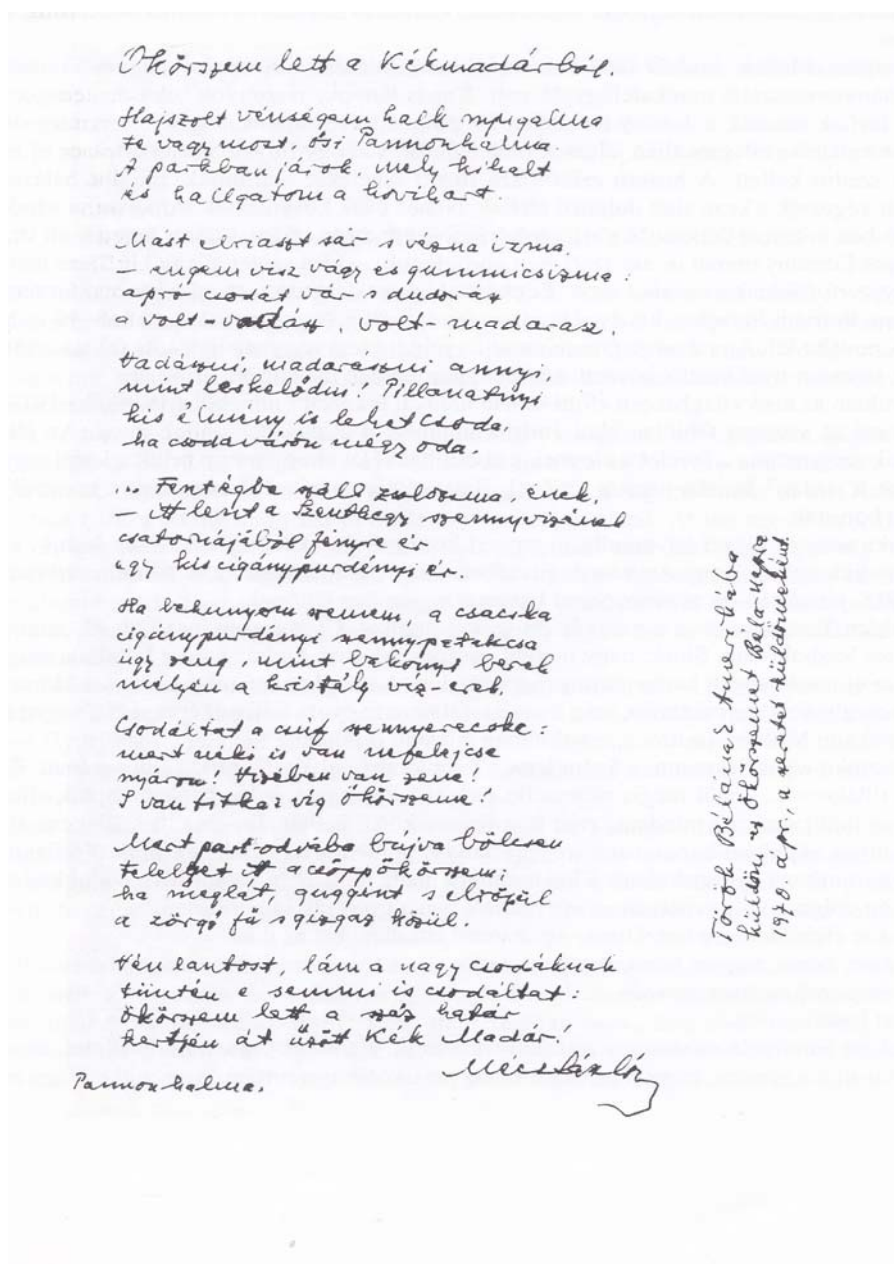 Ökörszem lett a Kékmadárból.
Hajszolt vénségem halk nyugalma
te vagy most, ősi Pannonhalma.
A parkban járok, mely kihalt
és hallgatom a hóvihart.
Mást elriaszt sár- s vegnaizma
– engem visz vágy és gummicsizma
apró csodát vár s dudorász
a volt-vadász, volt-madarász.
Vadászni, madarászni, annyi
mint leskelődni! Pillanatnyi
kis élmény is lehet csoda,
ha csodavárón mész oda.
... Fent égbe száll zsolozsma, ének,
– itt lent a Szenthegy szennyvizének
csatornájából fényre ér
egy kis cigánypurdényi ér
Ha behunyom szemem, a csacska
cigánypurdényi szennypatakocska
úgy zeng, mint bakonyi berek
mélyén a kristály víz-erek.
Csodáltat a cingár szennyvizecske:
mert néki is van szépe, icse
mása! Vizében van zene!
S van titka: víg ökörszeme!
Mert part-odvába bújva bölcsen
telelget itt a csöpp ökörszem;
ha meglát, gombként elröpül
a zörgő fű s gizgaz közül.
Vén lantost, lám a nagy csodáknak
tüntén e semmi is csodáltat:
ökörszem lett a száz határ
kertjén át űzött Kék Madár!
Mécs László
Pannonhalma.